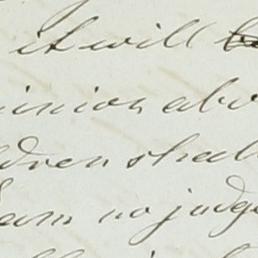 it will
inion abo
dren shal
am no judge